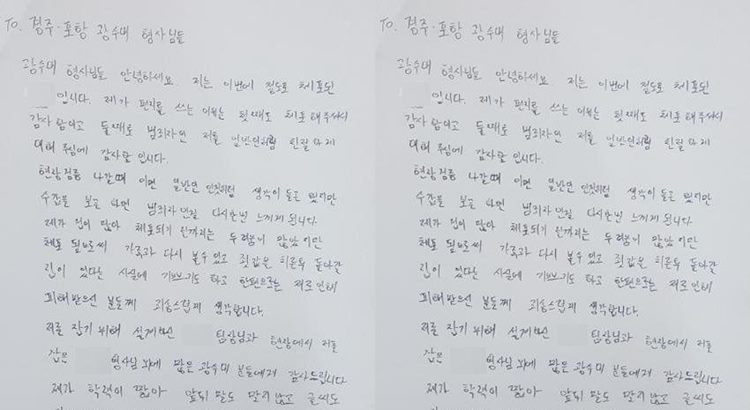 TO. 경주·포항 광수대 형사님들
광수대 형사님들 안녕하세요. 저는 이번에 절도로 체포된
입니다. 제가 편지를 쓰는 이유는 첫째로 체포해주셔서
감사함이고 둘째로 범죄자인 저를 일반인처럼 친절하게
대해 주심에 감사함 입니다.
현장검증 나갈때 이면 일반인 인것처럼 생각이 들곤 했지만
수갑을 보고 나면 범죄자 인걸 다시한번 느끼게 됩니다.
제가 겁이 많아 체포되기 전까지는 두려움이 많았지만
체포 됨으로써 가족과 다시 볼수 있고 죗값을 치른후 돌아갈
집이 있다는 사실에 기쁘기도 하고 한편으로는 저로인해
피해받으신 분들께 죄송스럽게 생각합니다.
저를 잡기 위해 설계하신 팀장님과 현장에서 저를
잡은 형사님 외에 많은 광수대 분들에게 감사드립니다
제가 학력이 짧아 앞뒤 말도 맞지않고 글씨도
TO. 경주·포항 광수대 형사님들
광수대 형사님들 안녕하세요. 저는 이번에 절도로 체포된
입니다. 제가 편지를 쓰는 이유는 첫째로 체포해주셔서
감사함이고 둘째로 범죄자인 저를 일반인처럼 친절하게
대해 주심에 감사함 입니다.
현장검증 나갈때 이면 일반인 인것처럼 생각이 들곤 했지만
수갑을 보고 나면 범죄자 인걸 다시한번 느끼게 됩니다.
제가 겁이 많아 체포되기 전까지는 두려움이 많았지만
체포 됨으로써 가족과 다시 볼수 있고 죗값을 치른후 돌아갈
집이 있다는 사실에 기쁘기도 하고 한편으로는 저로인해
피해받으신 분들께 죄송스럽게 생각합니다.
저를 잡기 위해 설계하신 팀장님과 현장에서 저를
잡은 형사님 외에 많은 광수대 분들에게 감사드립니다
제가 학력이 짧아 앞뒤 말도 맞지않고 글씨도